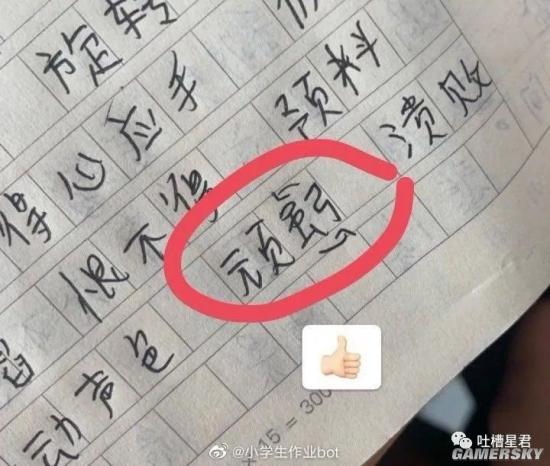 旋转
得心应手
恨不得 预料
动声色 顽 溃败
15 = 300
@小学生作业bot
吐槽星君
GAMERSKY